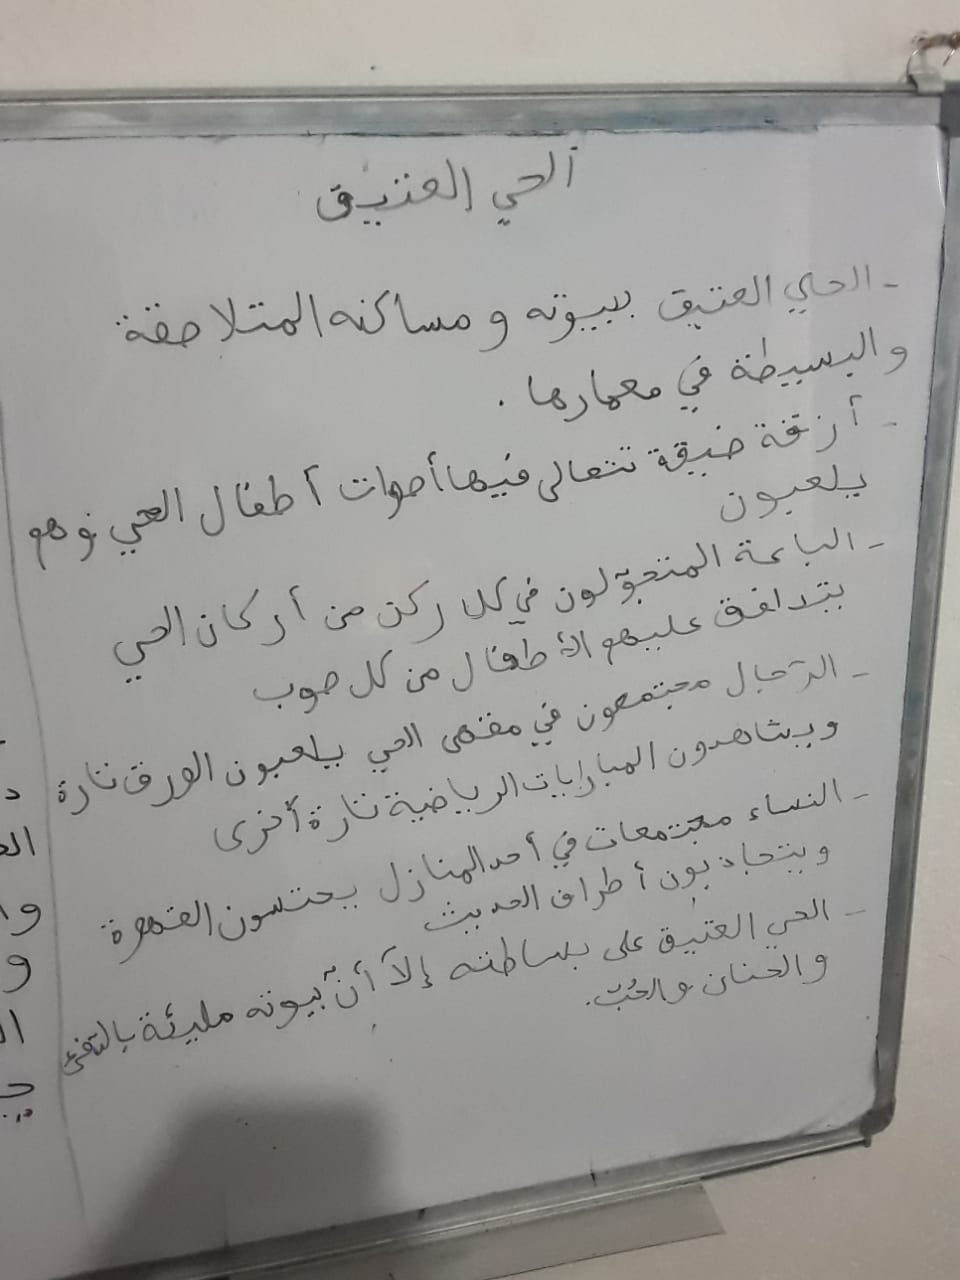 الحي العتيق
- الحي العتيق ببيوته و مساكنه المتلاصقة
والبسيطة في معمارها .
- أزقة ضيقة تتعالى فيها أصوات أطفال الحي وهم
يلعبون
- الباعة المتجوّلون في كل ركن من أركان الحي
يتدافق عليهم الأطفال من كل صوب
- الرّجال مجتمعون في مقهى الحي يلعبون الورق تارة
ويشاهدون المباريات الرياضية تارة أخرى
- النساء مجتمعات في أحد المنازل يحتسون القهوة
ويتجاذبون أطراف الحديث
- الحي العتيق على بساطته إلاّ أنّ بيوته مليئة بالدّفئ
والحنان والحُبّ.